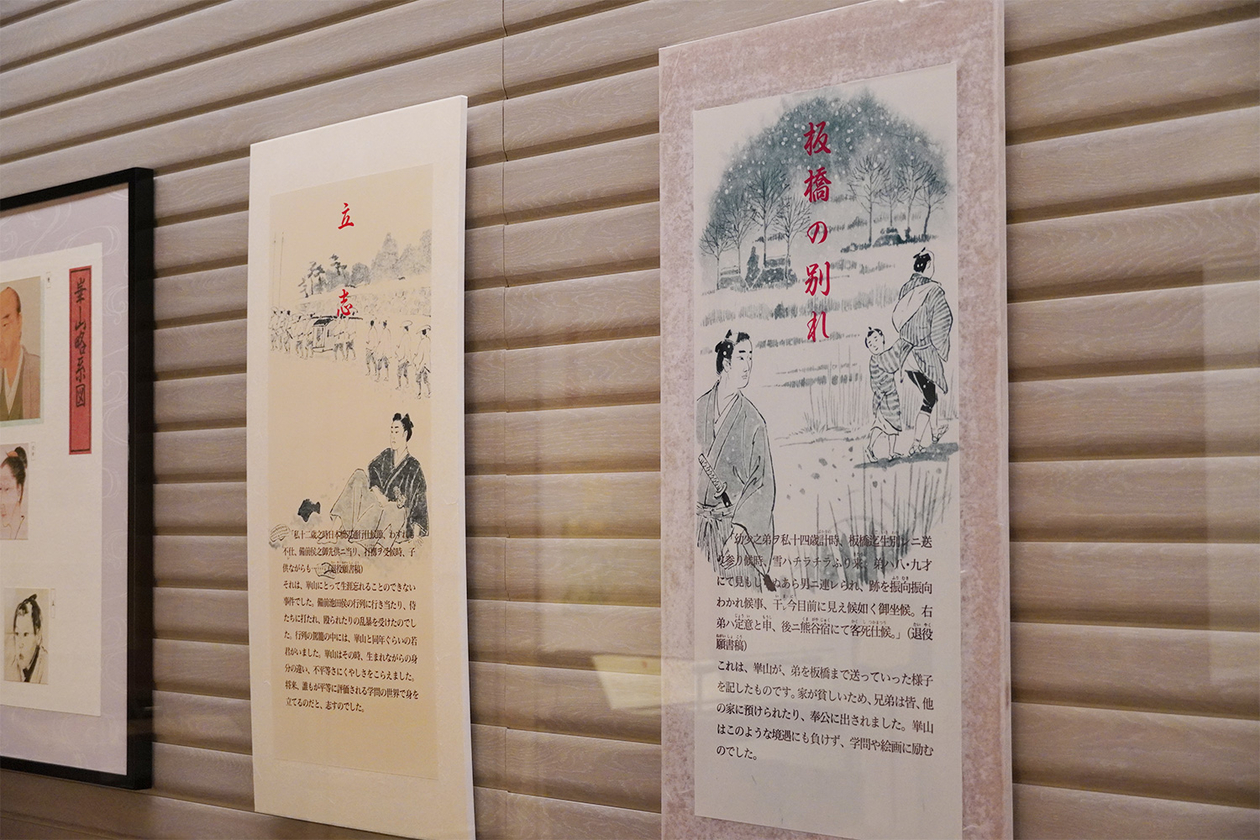 崋山略系図
立志
「私十二歳之時日本橋辺通行仕候節、
不仕、備前侯之御先供ニ当り、打擲ヲ受候時、子
供ながらも……(退役願書稿)
それは、崋山にとって生涯忘れることのできない
事件でした。備前池田侯の行列に行き当たり、侍
たちに打たれ、殴られたりの乱暴を受けたのでし
た。行列の駕籠の中には、崋山と同年ぐらいの若
君がいました。崋山はその時、生まれながらの身
分の違い、不平等さにくやしさをこらえました。
将来、誰もが平等に評価される学問の世界で身を
立てるのだと、志すのでした。
板橋の別れ
「幼少之弟ヲ私十四歳計時、板橋迄生別レニ送
り参り候時、雪ハチラチラふり来、弟ハ八・九才
にて見もしらぬあら男ニ連レられ、跡を振向振向
わかれ候事、于今目前に見え候如く御坐候。右
弟ハ定意と申、後ニ熊谷宿にて客死仕候。」(退役
願書稿)
これは、崋山が、弟を板橋まで送っていった様子
を記したものです。家が貧しいため、兄弟は皆、他
の家に預けられたり、奉公に出されました。崋山
はこのような境遇にも負けず、学問や絵画に励む
のでした。